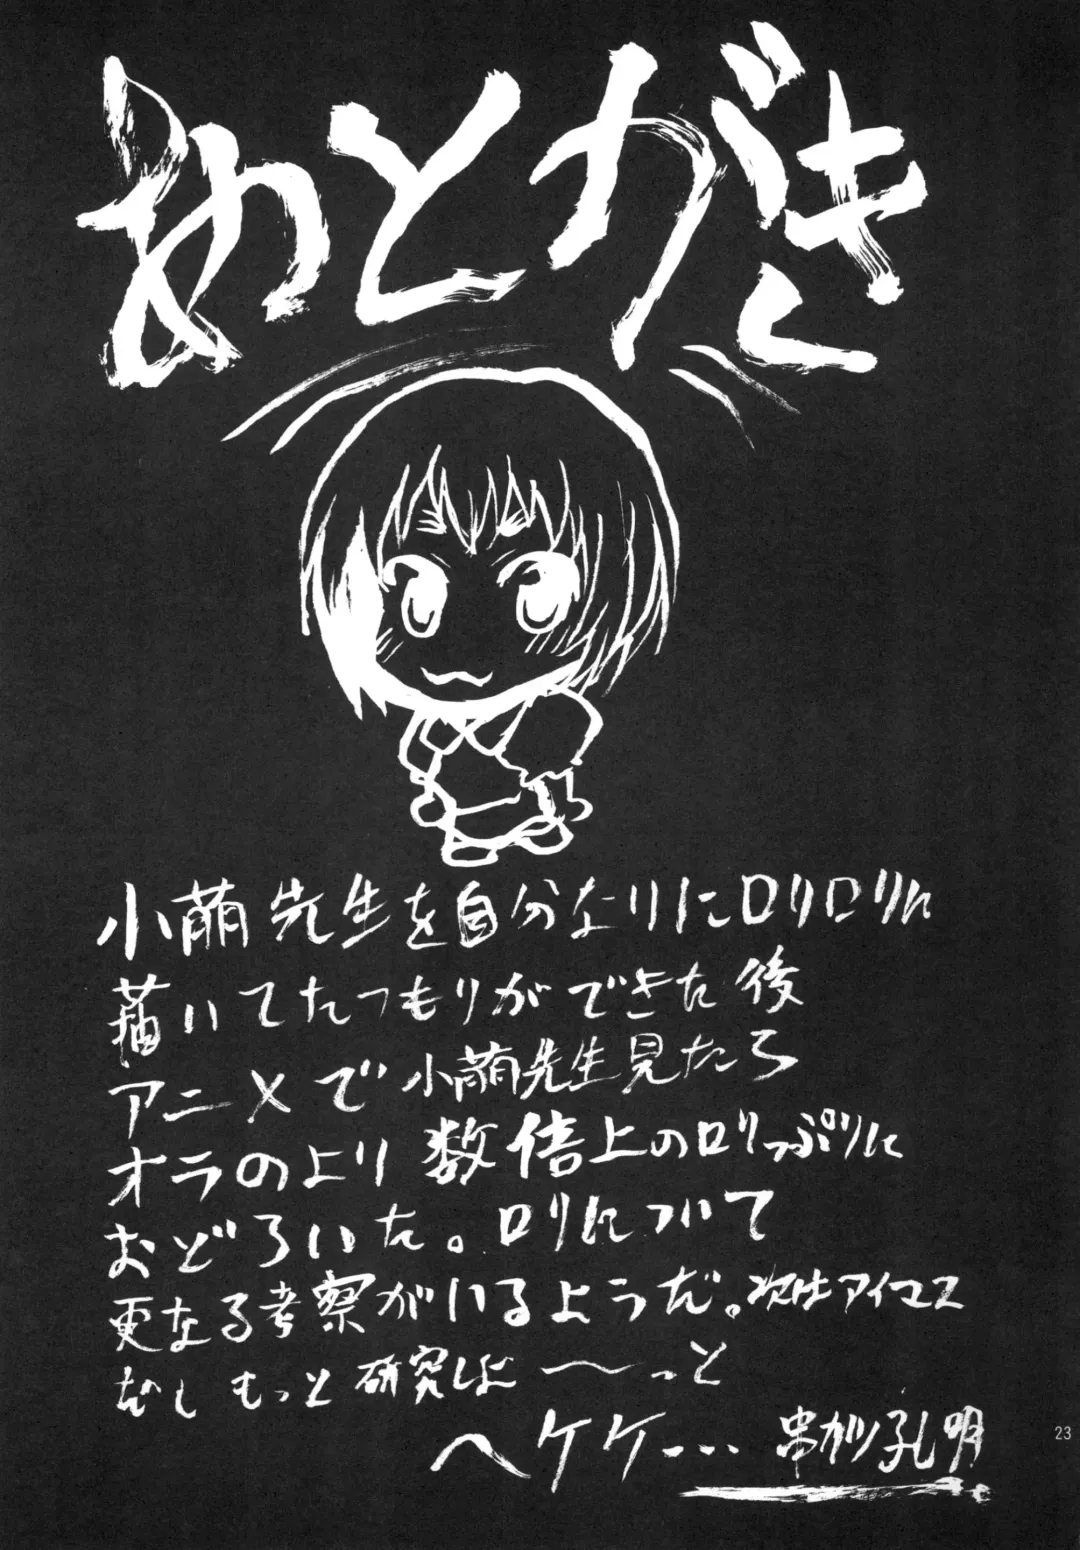 あとがき
小萌先生を自分なりにロリロリに
描いてたつもりができた後
アニメで小萌先生見たら
オラのより数倍上のロリっぷりに
おどろいた。ロリについて
更なる考察がいるようだ。次はアイマス
だし もっと研究しよ〜っと
へケケー… 串カツ孔明
23